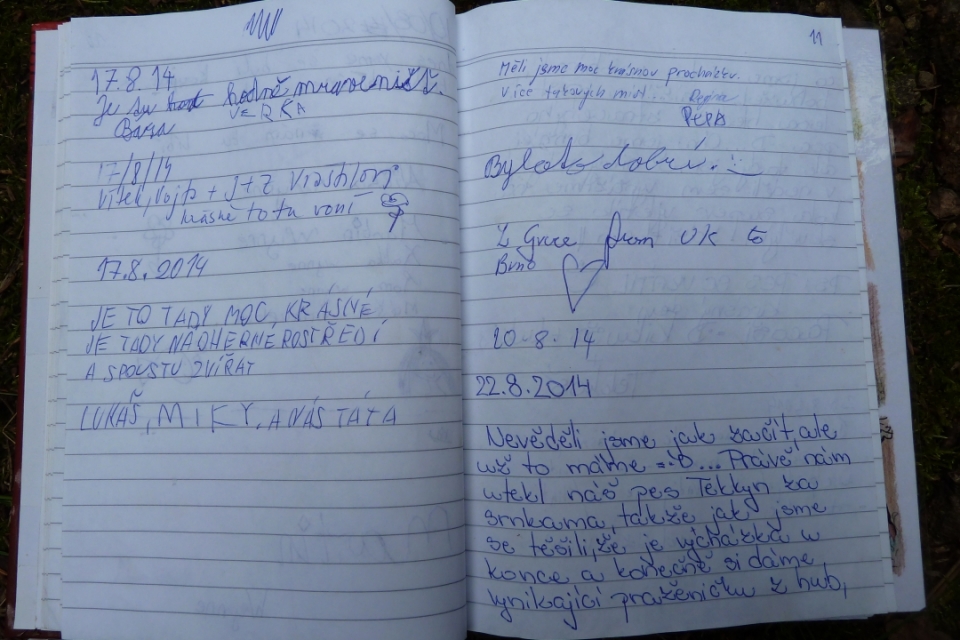 17.8.14
Je hodně mravenišť.
Bára VERKA
17/8/14
Vítek, Vojta + J+Z
krásně to tu voní
17.8.2014
JE TO TADY MOC KRÁSNÉ
JE TADY NÁDHERNÉ ROSTŘEDÍ
A SPOUSTU ZVÍŘAT
LUKÁŠ, MIKY, A NÁŠ TÁTA
11
Měli jsme moc krásnou procházku.
Více takových míst.
PEPA
Bylo dobrí. :-)
Grace from UK to
Brno
20.8.14
22.8.2014
Nevěděli jsme jak začít, ale
už to máme =:D... Právě nám
utekl náš pes Tekkyn za
srnkama, takže jak jsme
se těšili, že je vycházka u
konce a konečně si dáme
vynikající praženičku z hub,